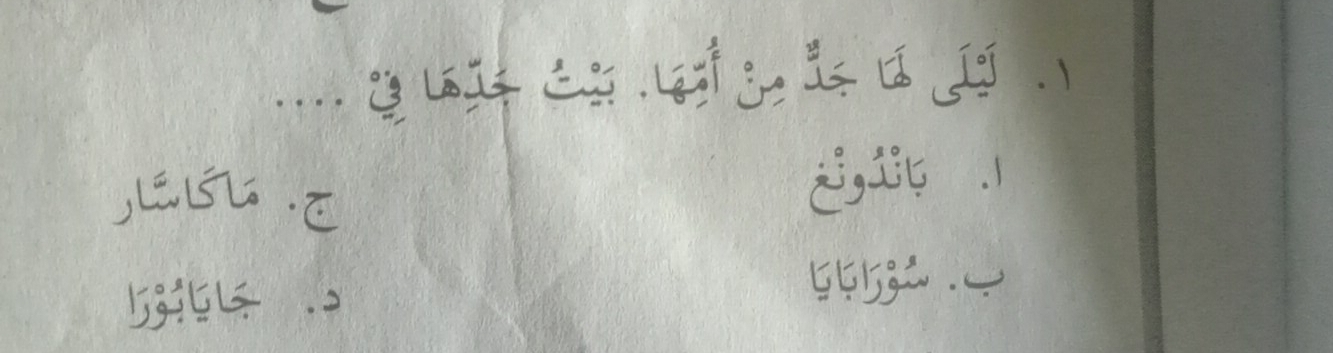 ١. لَيْلَى لَهَا جَدٌّ مِنْ أُمِّهَا. بَيْتُ جَدِّهَا فِيْ ....
ا. بَانْدُونْغ ج. مَاكَاسَّار
ب. سُوْرَابَايَا د. جَايَابُوْرَا